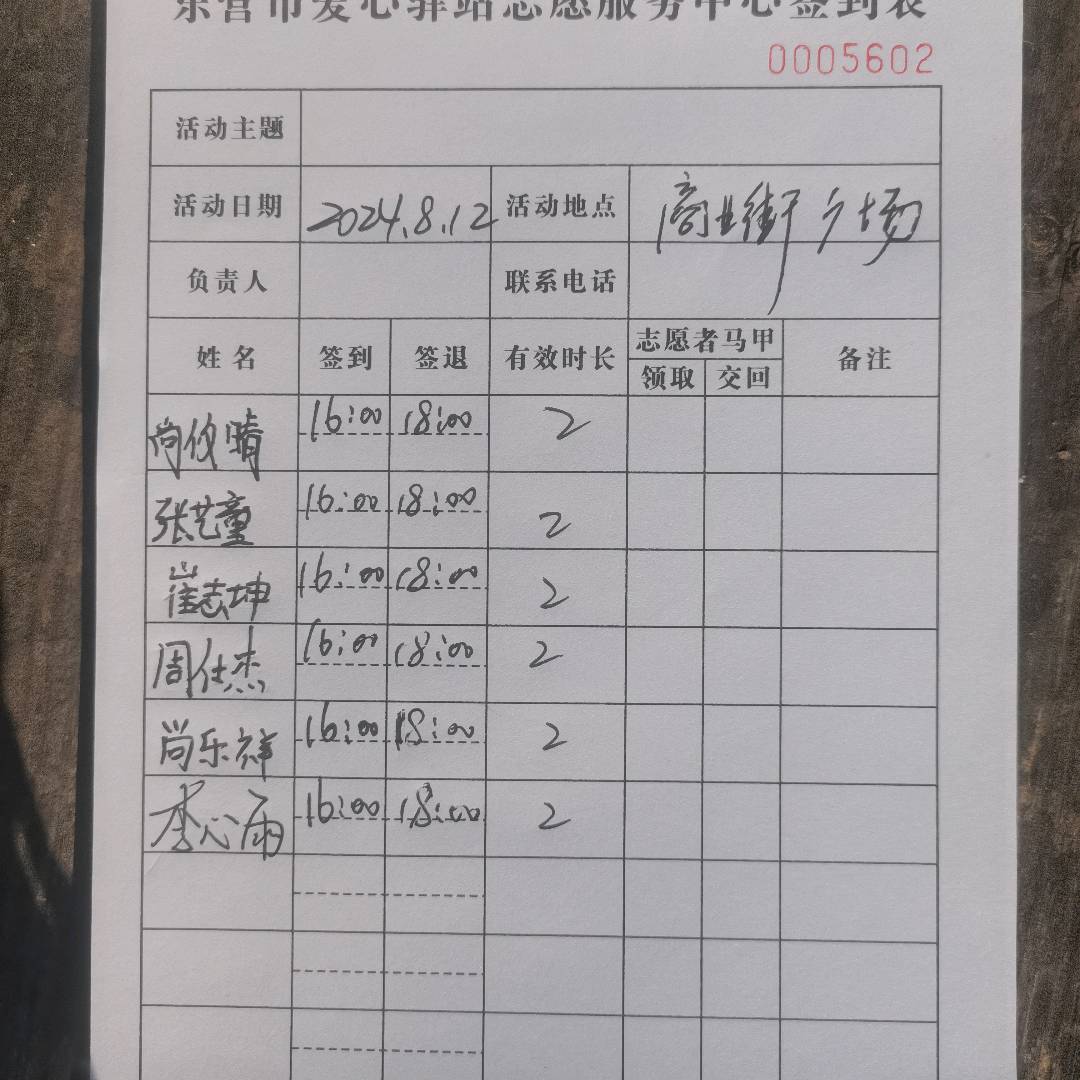 东营市爱心驿站志愿服务中心签到表
0005602
活动主题
活动日期 2024.8.12 活动地点 商业街广场
负责人 联系电话
姓名 签到 签退 有效时长 志愿者马甲 备注
领取 交回
尚仪晴 16:00 18:00 2
张艺童 16:00 18:00 2
崔志坤 16:00 18:00 2
周仕杰 16:00 18:00 2
尚乐祥 16:00 18:00 2
李心雨 16:00 18:00 2